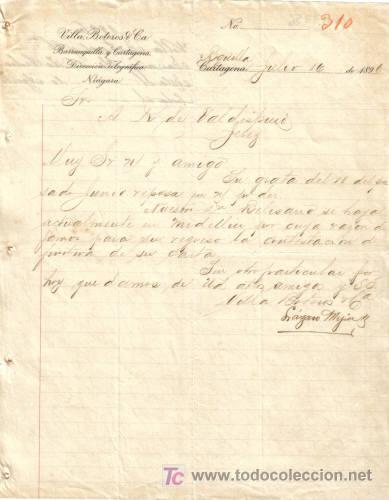 No. 310
Villa, Boteros & Ca.
Barranquilla y Cartagena.
Dirección Telegráfica
Niágara.
Cartagena, Julio 16 de 1896
Sr.
M. de Valdespino
Jerez
Muy Sr. n/ y amigo
Su grata del 18 del pa
sado Junio reposa en n/ poder.
Nuestro Sr. Belisario se haya
actualmente en Medellin por cuya razon de
jamos para su regreso la contestación de
su carta
Sin otro particular por
hoy quedamos de Ud. atts. amigos y SS
Villa Boteros & Ca
Lázaro Mejia
TC www.todocoleccion.net